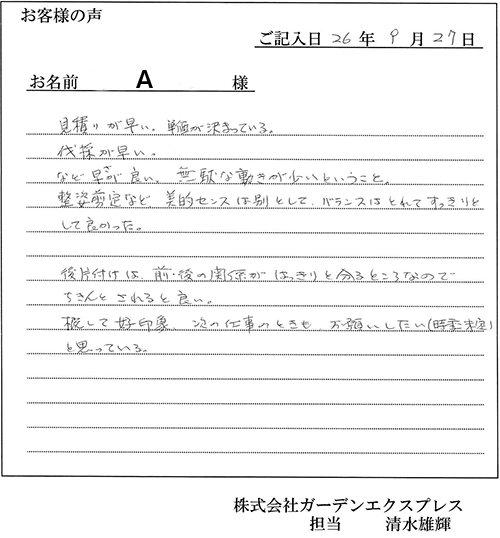 お客様の声
ご記入日 26 年 9 月 27 日
お名前 A 様
見積りが早い、単価が決まっている。
伐採が早い。
など早さが良い。無駄な動きが少いということ。
整姿剪定など 美的センスは別として、バランスはとれてすっきりと
して良かった。
後片付けは、前・後の関係が はっきりと分るところなので
ちきんと されると良い。
概して好印象、次の仕事のときも お願いしたい(時季未定)
と思っている。
株式会社ガーデンエクスプレス
担当 清水雄輝